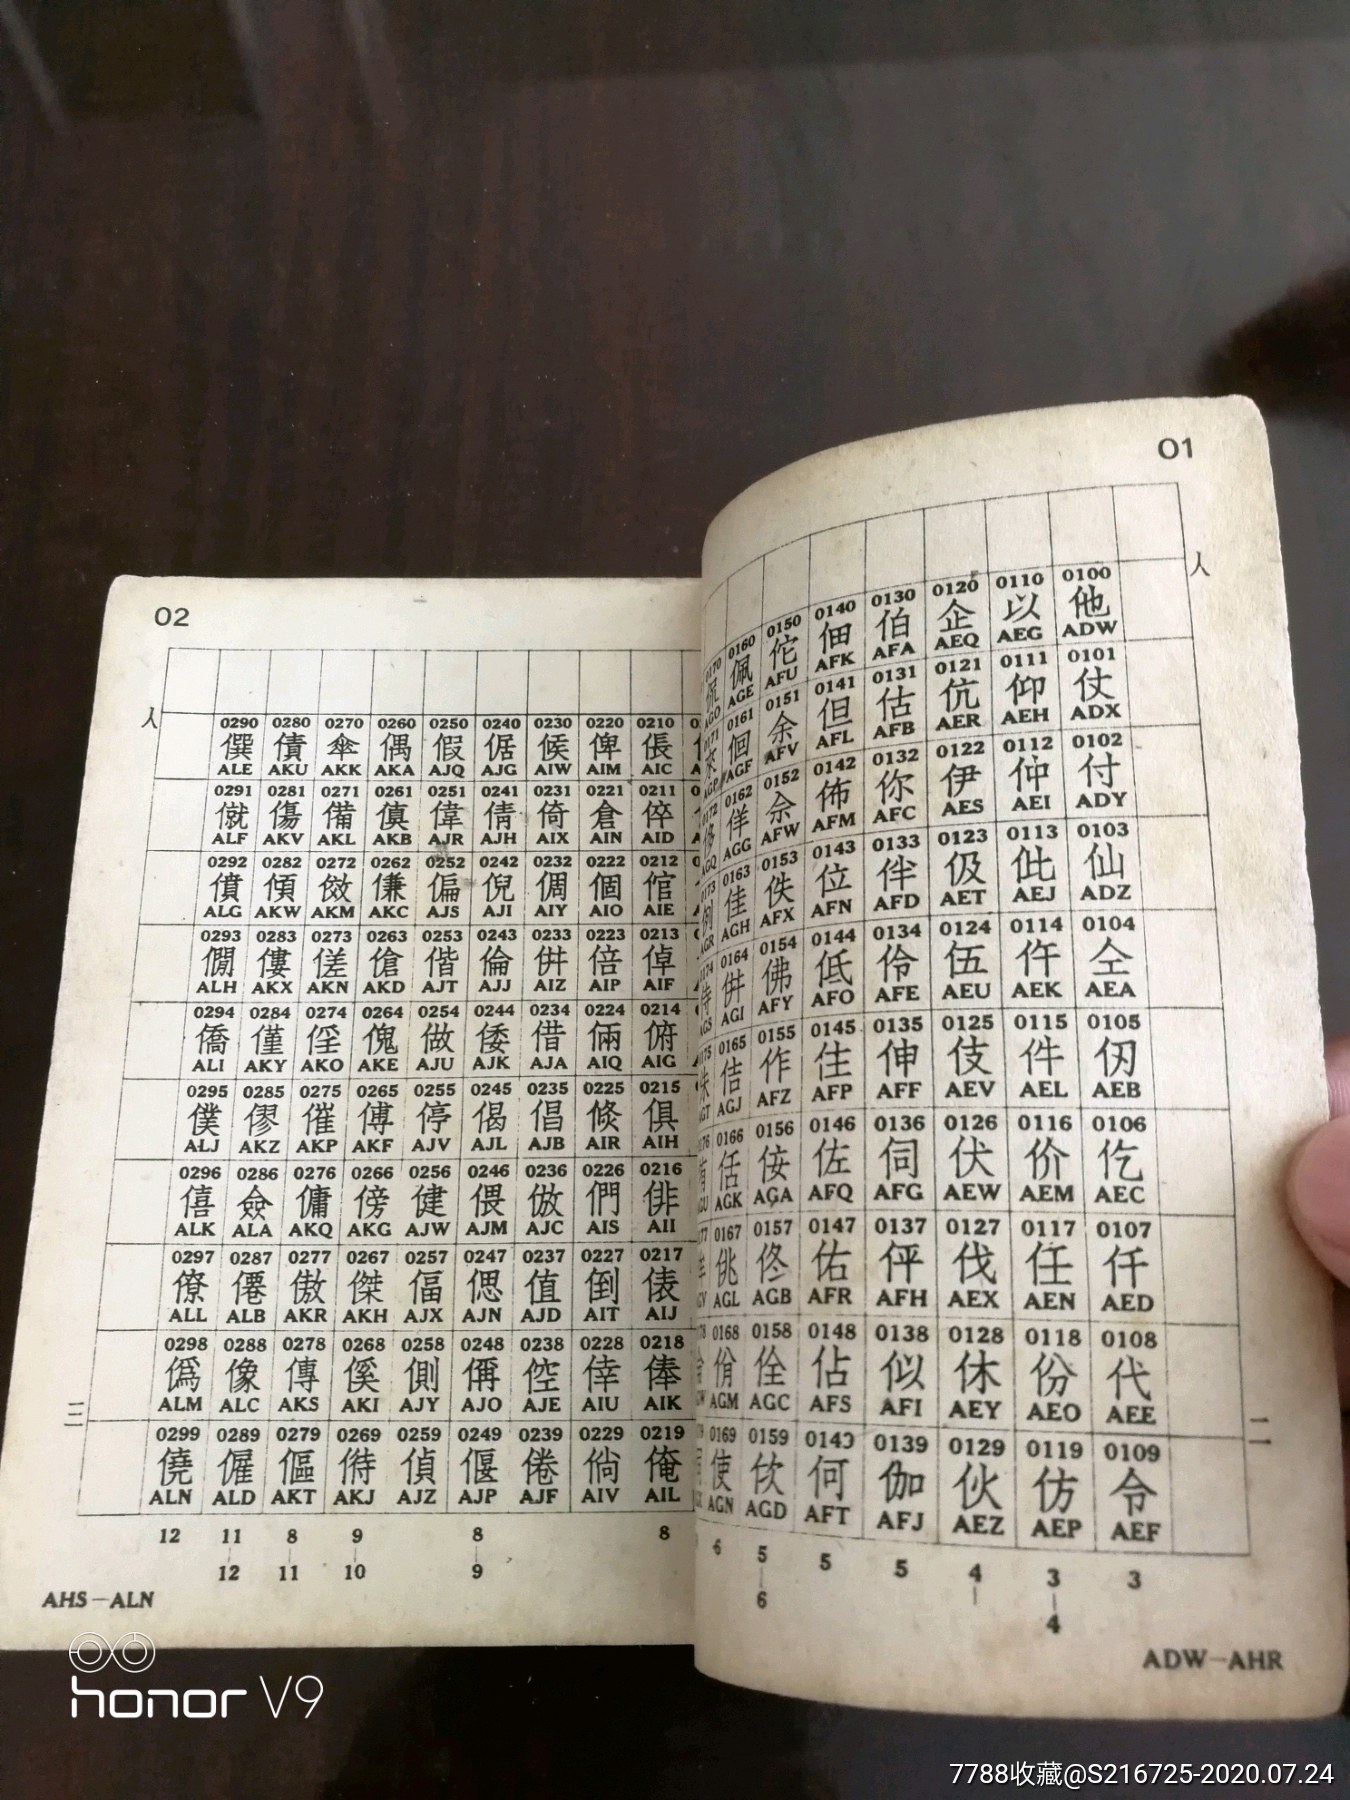 02
人
0290 0280 0270 0260 0250 0240 0230 0220 0210
僎 債 傘 偶 假 倨 候 俾 倀
ALE AKU AKK AKA AJQ AJG AIW AIM AIC
0291 0281 0271 0261 0251 0241 0231 0221 0211
僦 傷 備 傎 偉 倩 倚 倉 倅
ALF AKV AKL AKB AJR AJH AIX AIN AID
0292 0282 0272 0262 0252 0242 0232 0222 0212
僨 傾 傚 傔 偏 倪 倜 個 倌
ALG AKW AKM AKC AJS AJI AIY AIO AIE
0293 0283 0273 0263 0253 0243 0233 0223 0213
僩 僂 傞 傖 偕 倫 倂 倍 倬
ALH AKX AKN AKD AJT AJJ AIZ AIP AIF
0294 0284 0274 0264 0254 0244 0234 0224 0214
僑 僅 傜 傀 做 倭 借 倆 俯
ALI AKY AKO AKE AJU AJK AJA AIQ AIG
0295 0285 0275 0265 0255 0245 0235 0225 0215
僕 僇 催 傅 停 偈 倡 倏 俱
ALJ AKZ AKP AKF AJV AJL AJB AIR AIH
0296 0286 0276 0266 0256 0246 0236 0226 0216
僖 僉 傭 傍 健 偎 倣 們 俳
ALK ALA AKQ AKG AJW AJM AJC AIS AII
0297 0287 0277 0267 0257 0247 0237 0227 0217
僚 僊 傲 傑 偪 偲 值 倒 俵
ALL ALB AKR AKH AJX AJN AJD AIT AIJ
0298 0288 0278 0268 0258 0248 0238 0228 0218
僞 像 傳 傒 側 偁 倥 倖 俸
ALM ALC AKS AKI AJY AJO AJE AIU AIK
三
0299 0289 0279 0269 0259 0249 0239 0229 0219
僥 僱 傴 偫 偵 偃 倦 倘 俺
ALN ALD AKT AKJ AJZ AJP AJF AIV AIL
12 11 8 9 8 8
12 11 10 9
AHS－ALN
01
人
0170 0160 0150 0140 0130 0120 0110 0100
侃 佩 佗 佃 伯 企 以 他
AGO AGE AFU AFK AFA AEQ AEG ADW
0171 0161 0151 0141 0131 0121 0111 0101
來 佪 余 但 估 伉 仰 仗
AGP AGF AFV AFL AFB AER AEH ADX
0172 0162 0152 0142 0132 0122 0112 0102
侈 佯 佘 佈 你 伊 仲 付
AGQ AGG AFW AFM AFC AES AEI ADY
0173 0163 0153 0143 0133 0123 0113 0103
例 佳 佚 位 伴 伋 仳 仙
AGR AGH AFX AFN AFD AET AEJ ADZ
0174 0164 0154 0144 0134 0124 0114 0104
侍 併 佛 低 伶 伍 仵 仝
AGS AGI AFY AFO AFE AEU AEK AEA
0165 0155 0145 0135 0125 0115 0105
佶 作 住 伸 伎 件 仞
AGJ AFZ AFP AFF AEV AEL AEB
0166 0156 0146 0136 0126 0116 0106
佸 佞 佐 伺 伏 价 仡
AGK AGA AFQ AFG AEW AEM AEC
0167 0157 0147 0137 0127 0117 0107
佻 佟 佑 伻 伐 任 仟
AGL AGB AFR AFH AEX AEN AED
0168 0158 0148 0138 0128 0118 0108
佾 佺 佔 似 休 份 代
AGM AGC AFS AFI AEY AEO AEE
二
0169 0159 0149 0139 0129 0119 0109
使 佽 何 伽 伙 仿 令
AGN AGD AFT AFJ AEZ AEP AEF
6 5 5 5 4 3 3
6 4
ADW－AHR
honor V9
7788收藏@S216725-2020.07.24